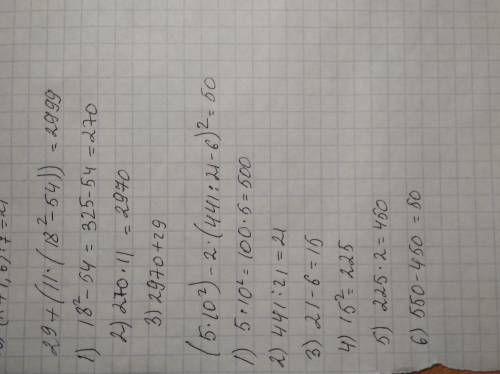 29+(11·(18²-54))=2999
1) 18²-54=325-54=270
2) 270·11=2970
3) 2970+29
(5·10²)-2·(441:21-6)²=50
1) 5·10²=100·5=500
2) 441:21=21
3) 21-6=15
4) 15²=225
5) 225·2=450
6) 550-450=50